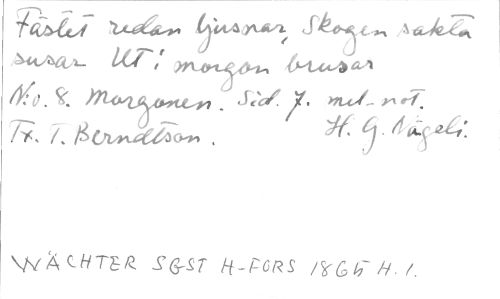 Fästet redan ljusnar, Skogen sakta
susar Ut i morgon brusar
N:o. 8. Morgonen. Sid. 7. mel-not.
Tx. T. Berndtson. H. G. Nägeli.
WÄCHTER SGST H-FORS 1865 H. 1.